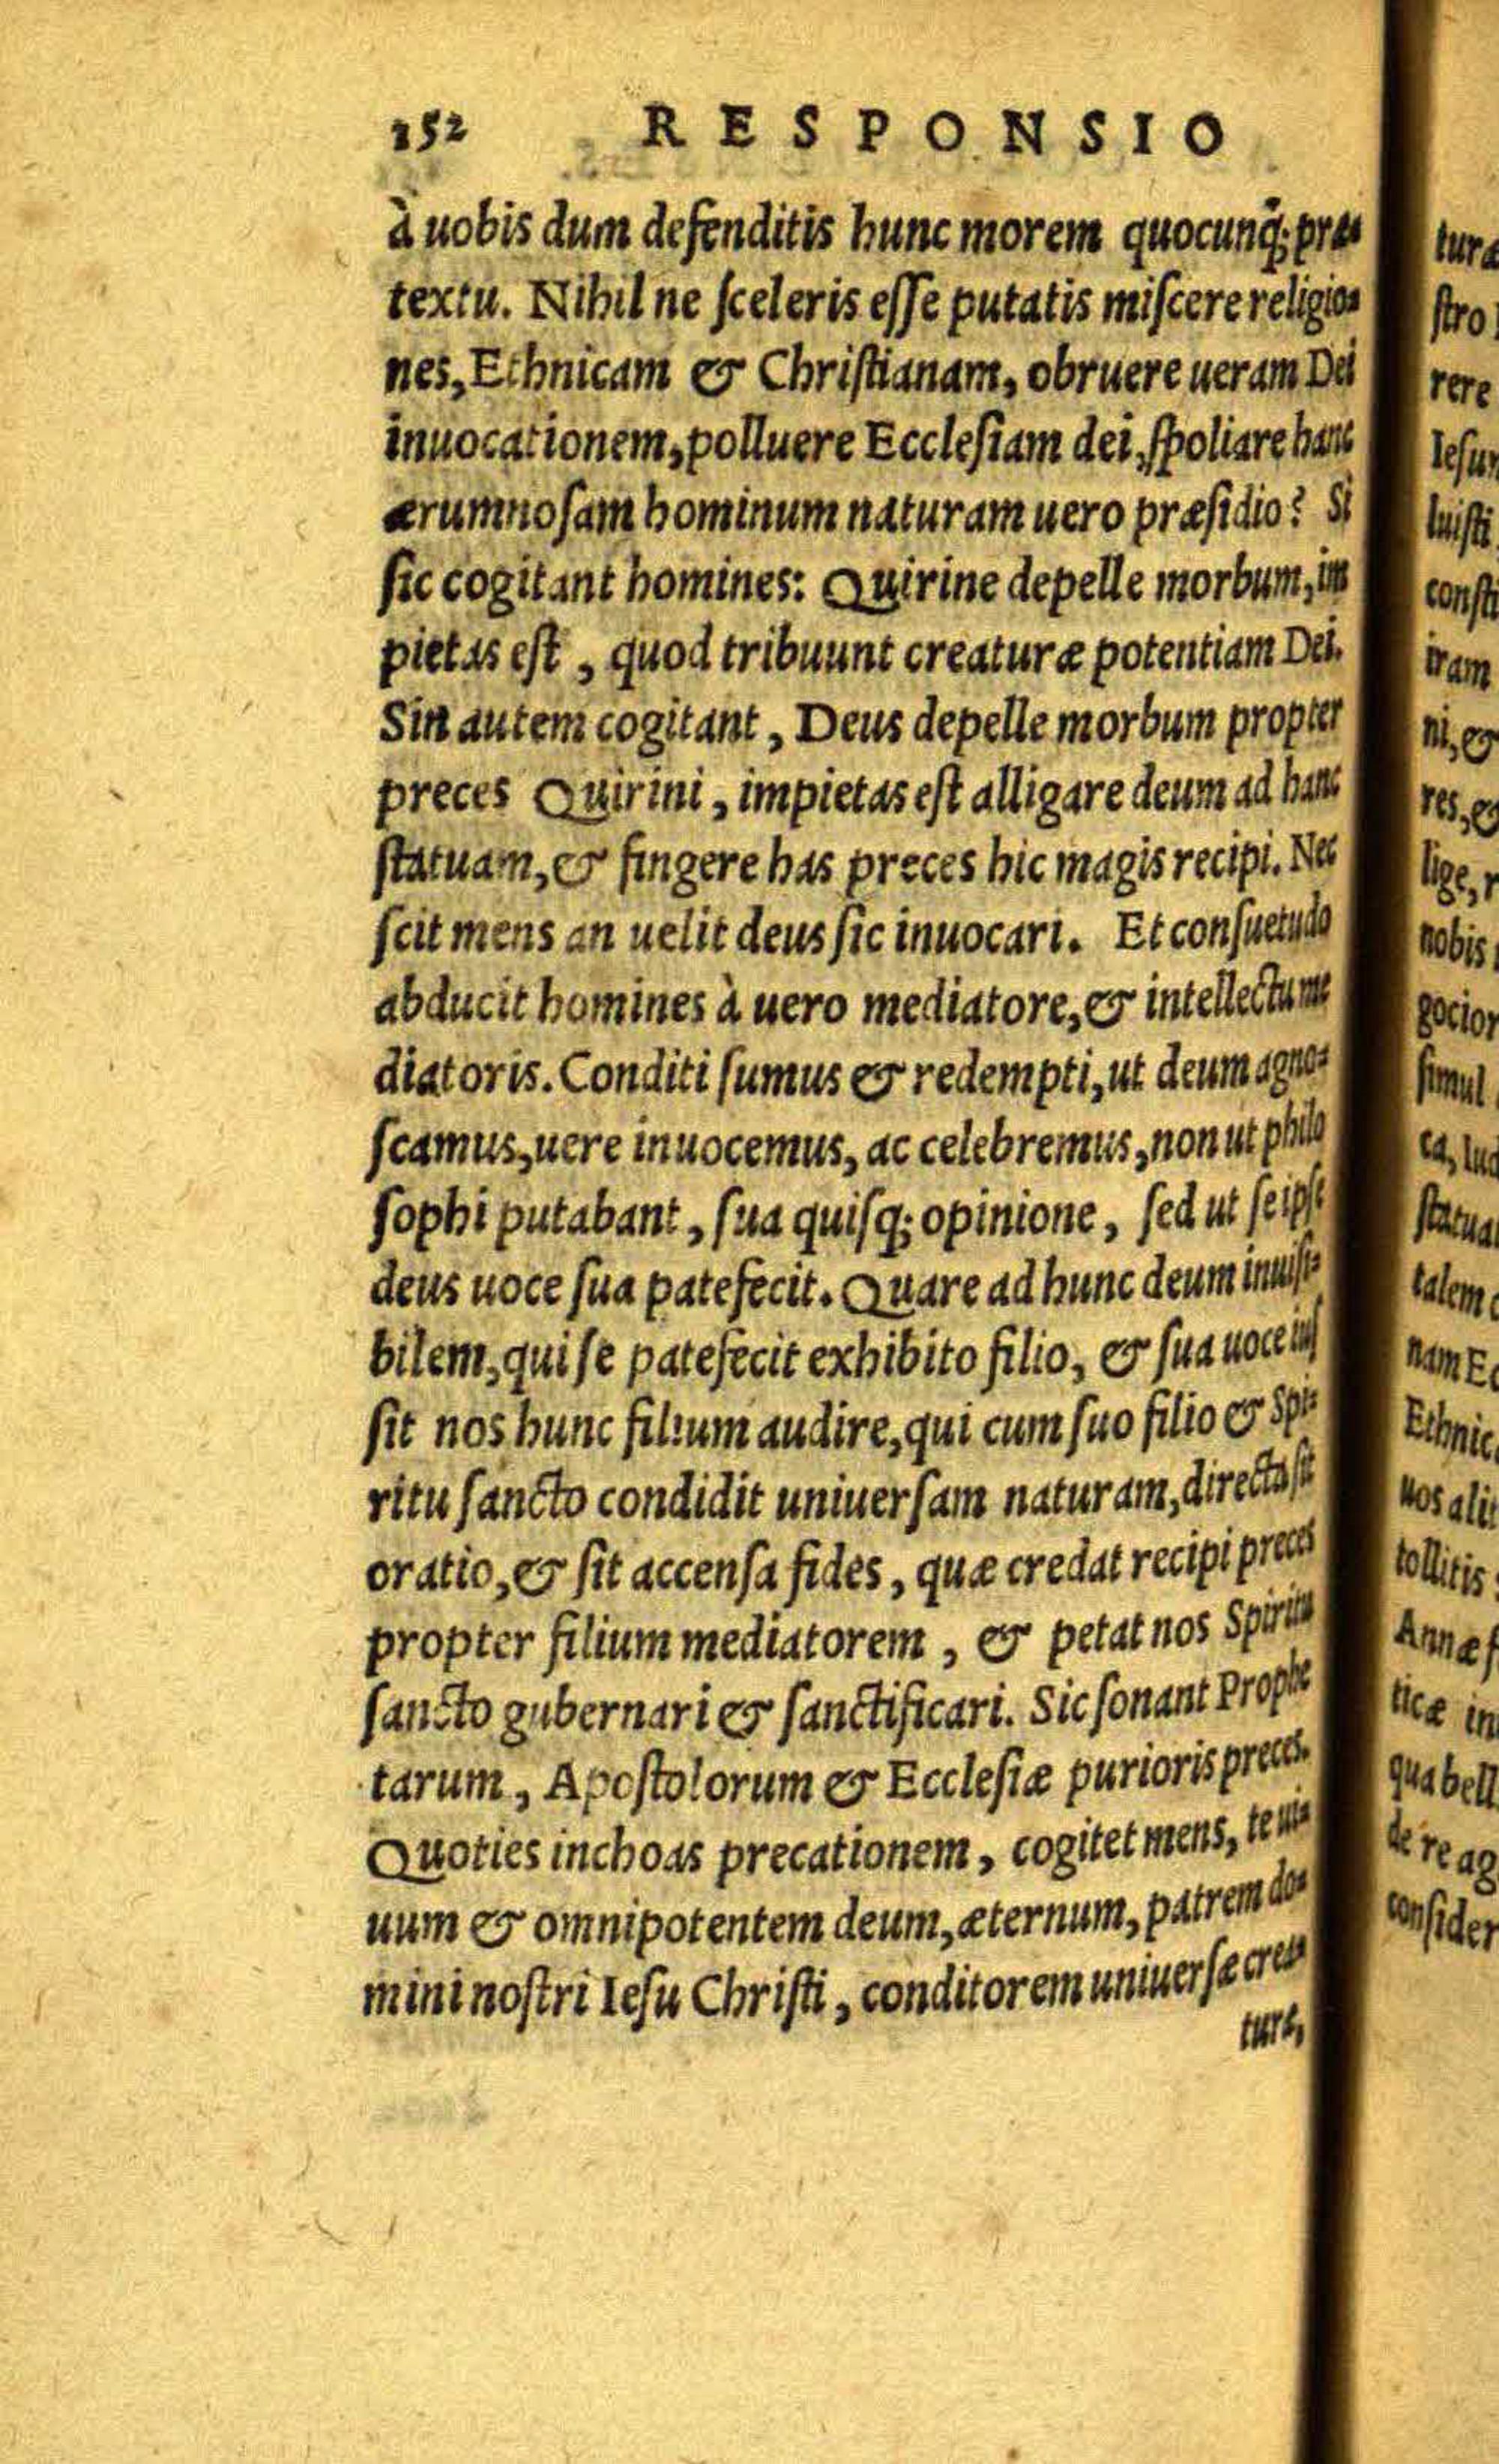 152 RESPONSIO
à uobis dum defenditis hunc morem quocunq́; præ-
textu. Nihil ne ſceleris eſſe putatis miſcere religio-
nes, Ethnicam & Chriſtianam, obruere ueram Dei
inuocationem, polluere Eccleſiam dei, ſpoliare hanc
ærumnoſam hominum naturam uero præſidio? Si
ſic cogitant homines: Quirine depelle morbum, im
pietas eſt, quod tribuunt creaturæ potentiam Dei.
Sin autem cogitant, Deus depelle morbum propter
preces Quirini, impietas eſt alligare deum ad hanc
ſtatuam, & fingere has preces hic magis recipi. Nec
ſcit mens an uelit deus ſic inuocari. Et conſuetudo
abducit homines à uero mediatore, & intellectu me
diatoris. Conditi ſumus & redempti, ut deum agno-
ſcamus, uere inuocemus, ac celebremus, non ut philo
ſophi putabant, ſua quiſq; opinione, ſed ut ſe ipſe
deus uoce ſua patefecit. Quare ad hunc deum inuiſi-
bilem, qui ſe patefecit exhibito filio, & ſua uoce iuſ
ſit nos hunc filium audire, qui cum ſuo filio & Spi-
ritu ſancto condidit uniuerſam naturam, directa ſit
oratio, & ſit accenſa fides, quæ credat recipi preces
propter filium mediatorem, & petat nos Spiritu
ſancto gubernari & ſanctificari. Sic ſonant Prophe
tarum, Apoſtolorum & Eccleſiæ purioris preces.
Quoties inchoas precationem, cogitet mens, te ui-
uum & omnipotentem deum, æternum, patrem do-
mini noſtri Ieſu Chriſti, conditorem uniuerſæ crea-
turæ,
ſtro
rere
luiſti
conſti
iram
ni, &
res, &
lige, r
nobis
gocior
ſimul
ſtatua
talem
nam Ec
Ethnic
uos alit
tollitis
Annæ f
ticæ in
qua bell
de re ag
conſider